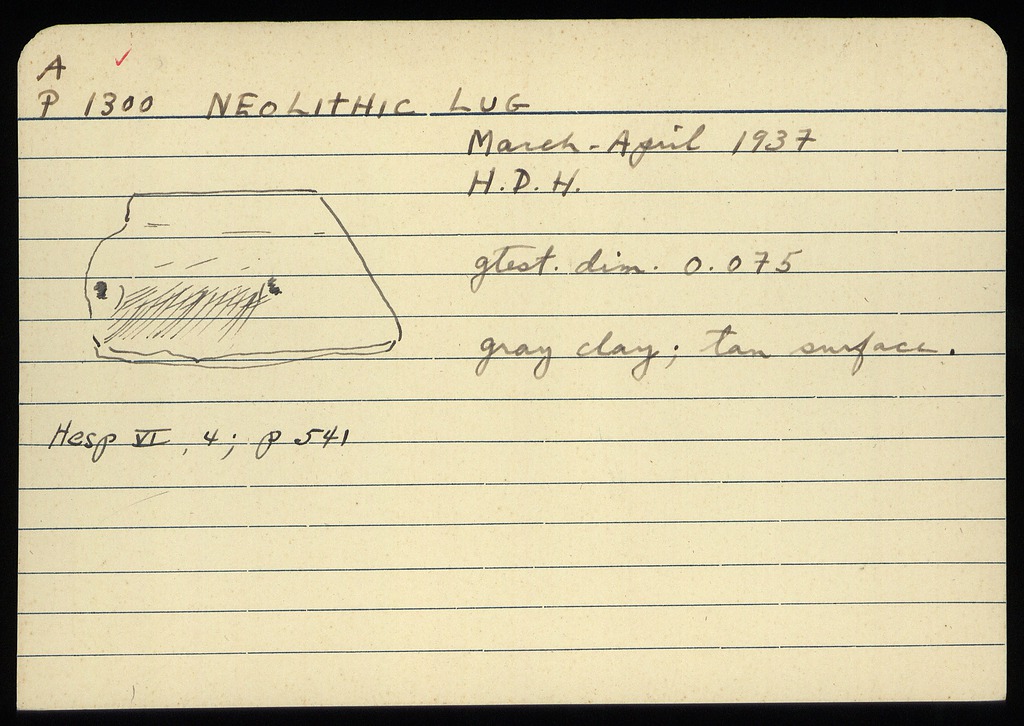 A
P 1300 NEOLITHIC LUG
March-April 1937
H.D.H.
gtest. dim. 0.075
gray clay; tan surface.
Hesp VI, 4; p 541